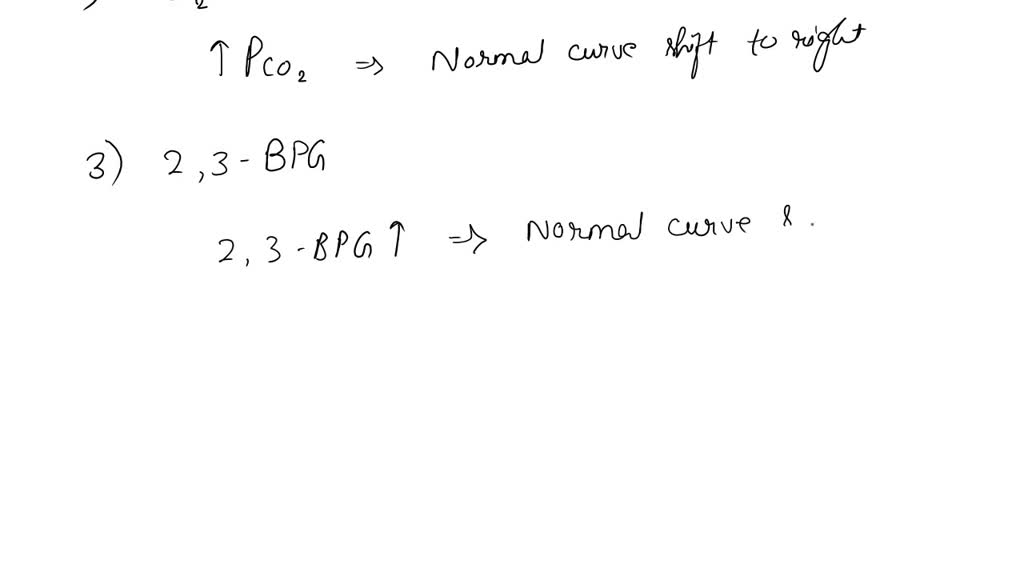 2
↑ PCO₂ ⇒ Normal curve shift to right
3) 2,3-BPG
2,3-BPG ↑ ⇒ Normal curve